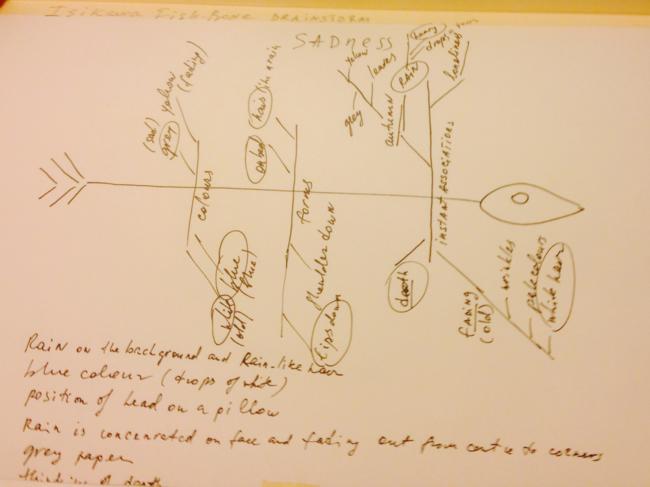 Isikawa Fish-Bone BRAINSTORM
SADNESS
(sad)
grey
yellow
(fading)
colours
white
(old)
blue
(blue)
hair like rain
forms
shoulders down
lips down
yellow
leaves
grey
autumn
RAIN
heavy
drops
loneliness
INSTANT ASSOCIATIONS
death
FADING
(OLD)
wrinkles
pale colours
white hair
Rain on the background and Rain-like hair
blue colour (drops of white)
position of head on a pillow
Rain is concenrated on face and fading out from centre to corners
grey paper
thinking of death